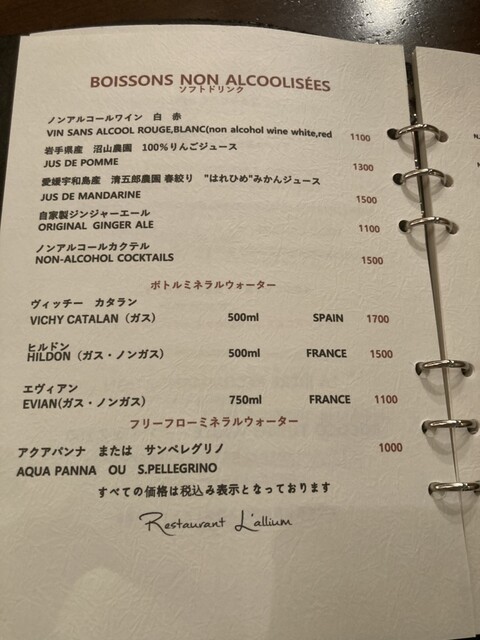 BOISSONS NON ALCOOLISÉES
ソフトドリンク
ノンアルコールワイン 白 赤
VIN SANS ALCOOL ROUGE,BLANC(non alcohol wine white,red 1100
岩手県産 沼山農園 100%りんごジュース
JUS DE POMME 1300
愛媛宇和島産 清五郎農園 春絞り "はれひめ"みかんジュース
JUS DE MANDARINE 1500
自家製ジンジャーエール
ORIGINAL GINGER ALE 1100
ノンアルコールカクテル
NON-ALCOHOL COCKTAILS 1500
ボトルミネラルウォーター
ヴィッチー カタラン
VICHY CATALAN（ガス） 500ml SPAIN 1700
ヒルドン
HILDON（ガス・ノンガス） 500ml FRANCE 1500
エヴィアン
EVIAN(ガス・ノンガス） 750ml FRANCE 1100
フリーフローミネラルウォーター
アクアパンナ または サンペレグリノ 1000
AQUA PANNA OU S.PELLEGRINO
すべての価格は税込み表示となっております
Restaurant L'allium